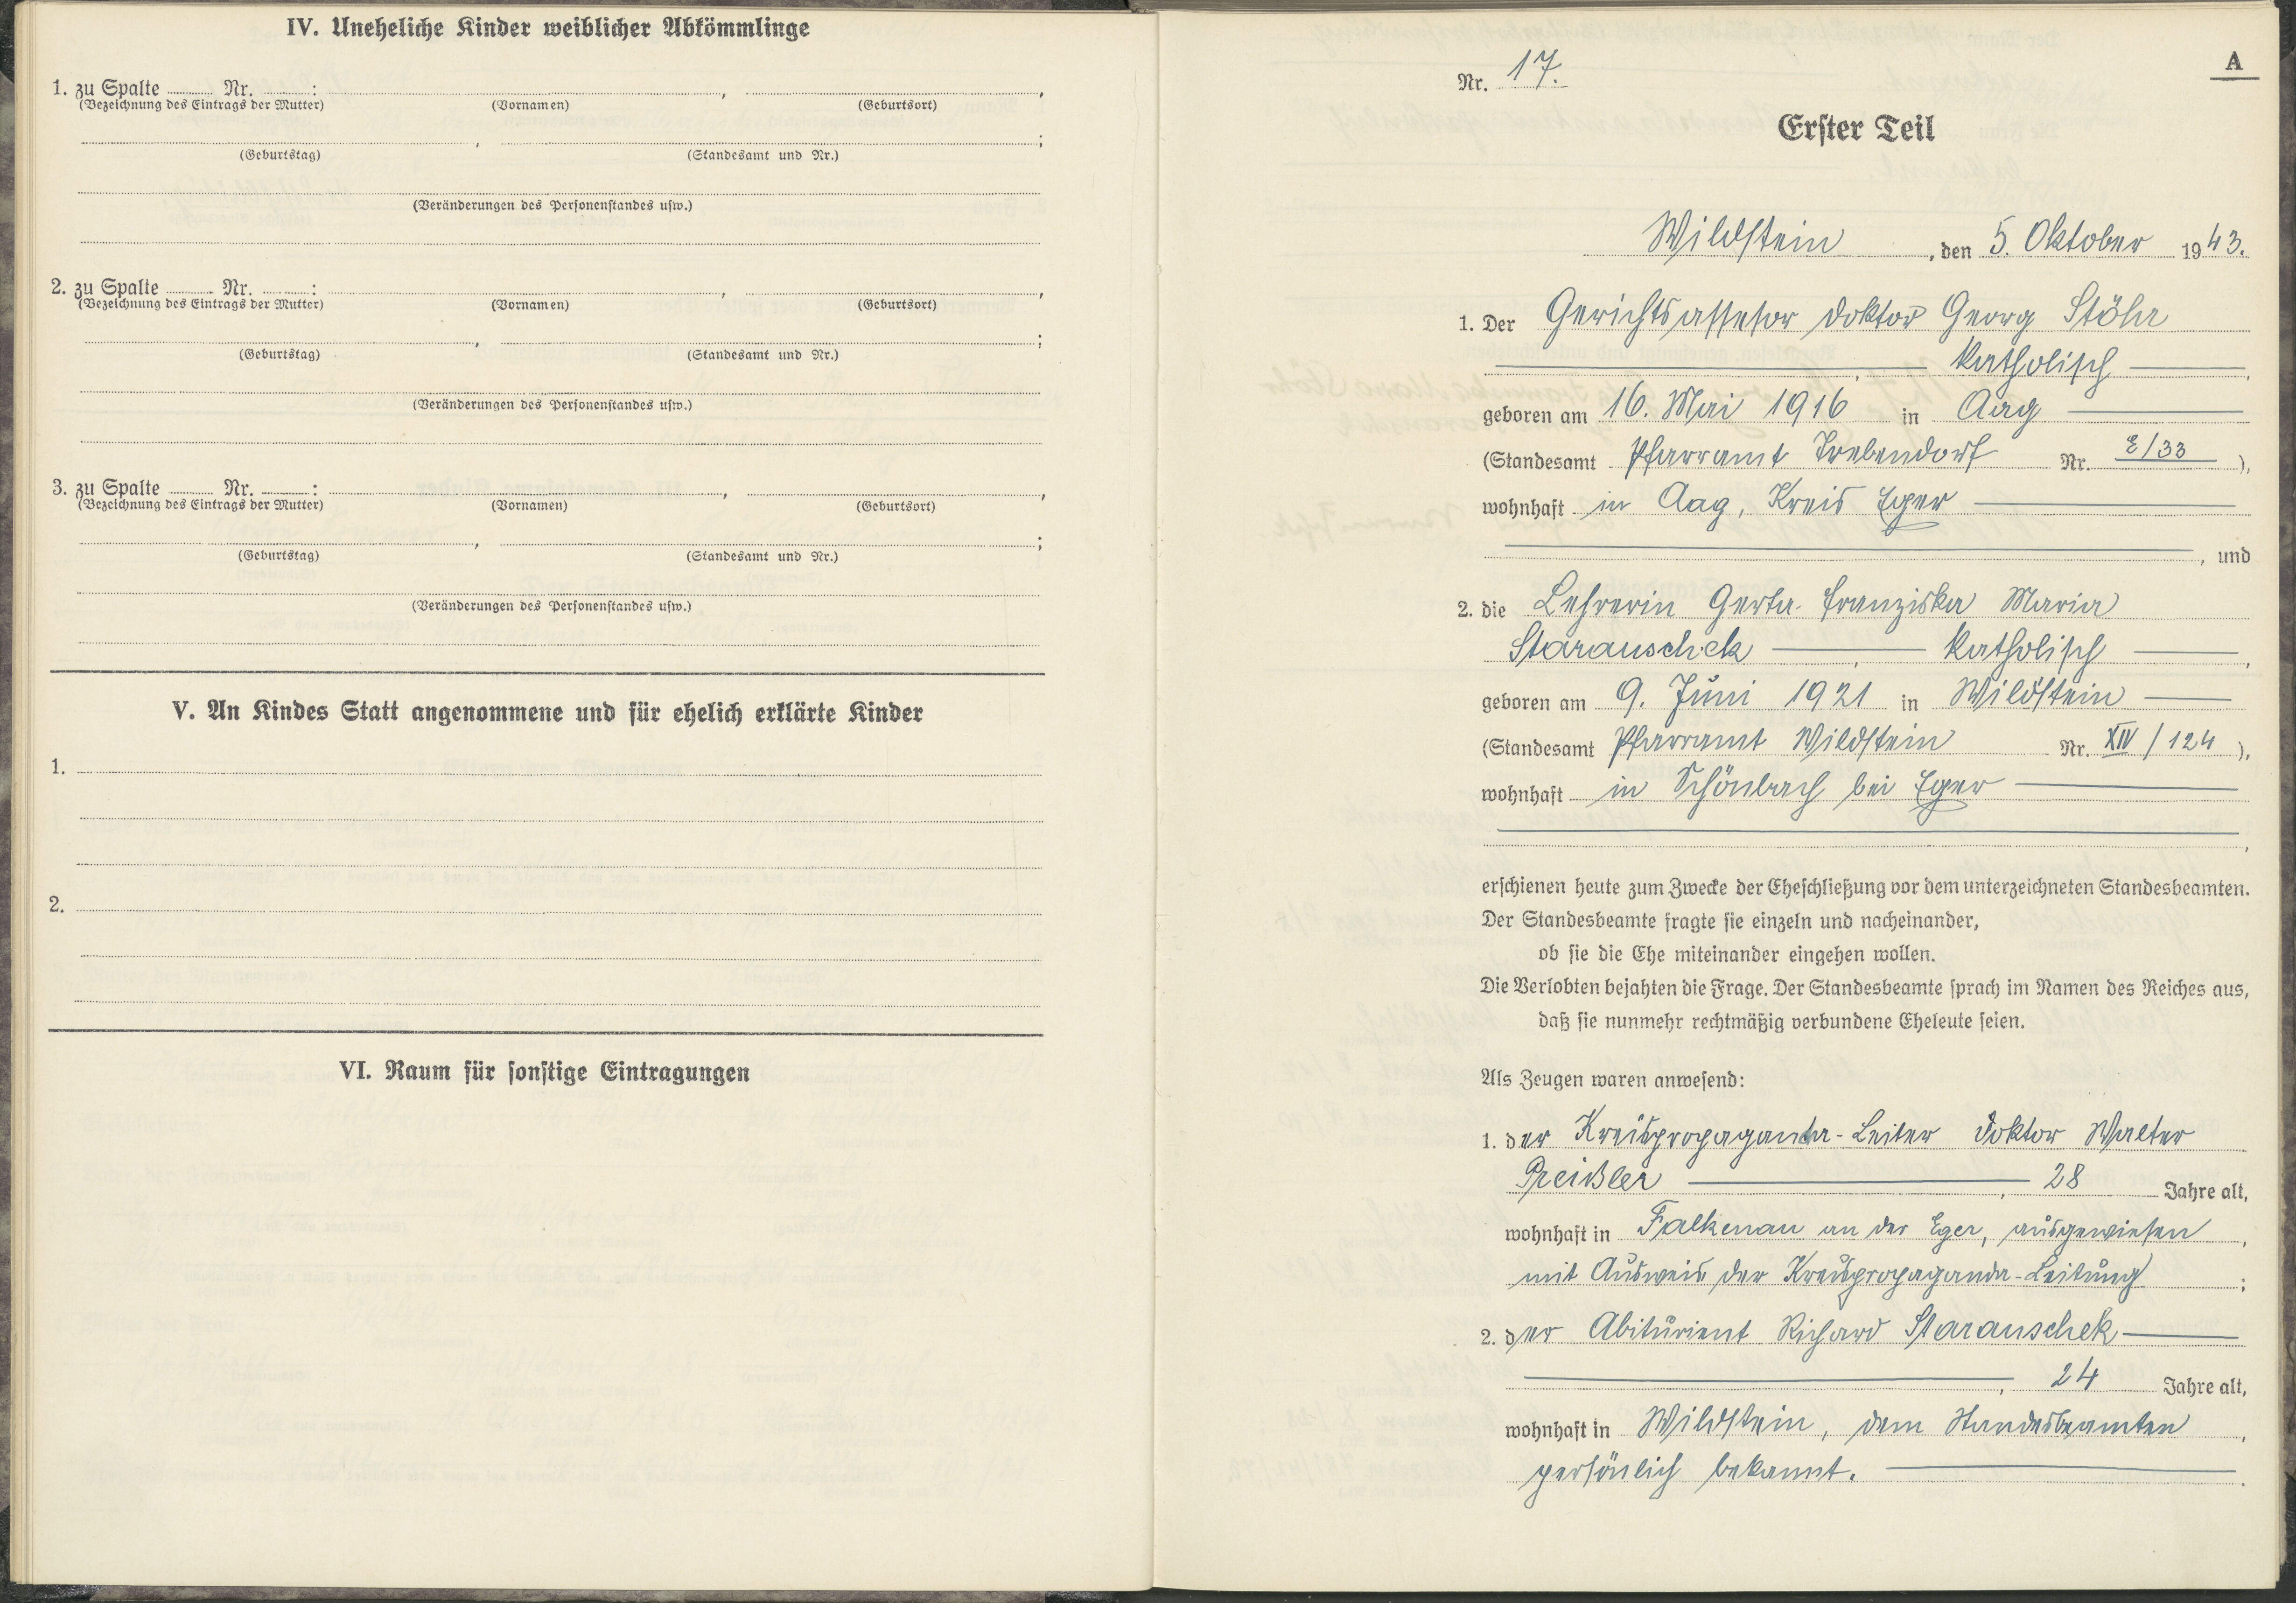 IV. Uneheliche Kinder weiblicher Abkömmlinge
1. zu Spalte Nr. : , ,
(Bezeichnung des Eintrags der Mutter) (Vornamen) (Geburtsort)
, ;
(Geburtstag) (Standesamt und Nr.)
(Veränderungen des Personenstandes usw.)
2. zu Spalte Nr. : , ,
(Bezeichnung des Eintrags der Mutter) (Vornamen) (Geburtsort)
, ;
(Geburtstag) (Standesamt und Nr.)
(Veränderungen des Personenstandes usw.)
3. zu Spalte Nr. : , ,
(Bezeichnung des Eintrags der Mutter) (Vornamen) (Geburtsort)
, ;
(Geburtstag) (Standesamt und Nr.)
(Veränderungen des Personenstandes usw.)
V. An Kindes Statt angenommene und für ehelich erklärte Kinder
1.
2.
VI. Raum für sonstige Eintragungen
A
Nr. 17.
Erster Teil
Wildstein, den 5. Oktober 1943.
1. Der Gerichtsassesor Doktor Georg Stöhr
, katholisch,
geboren am 16. Mai 1916 in Aag
(Standesamt Pfarramt Trebendorf Nr. E/33),
wohnhaft in Aag, Kreis Eger
, und
2. die Lehrerin Gerta Franziska Maria
Starauschek, katholisch,
geboren am 9. Juni 1921 in Wildstein
(Standesamt Pfarramt Wildstein Nr. XIV/124),
wohnhaft in Schönbach bei Eger
,
erschienen heute zum Zwecke der Eheschließung vor dem unterzeichneten Standesbeamten.
Der Standesbeamte fragte sie einzeln und nacheinander,
ob sie die Ehe miteinander eingehen wollen.
Die Verlobten bejahten die Frage. Der Standesbeamte sprach im Namen des Reiches aus,
daß sie nunmehr rechtmäßig verbundene Eheleute seien.
Als Zeugen waren anwesend:
1. der Kreispropaganda-Leiter Doktor Walter
Preißler, 28 Jahre alt,
wohnhaft in Falkenau an der Eger, ausgewiesen,
mit Ausweis der Kreispropaganda-Leitung;
2. der Abiturient Richard Starauschek
, 24 Jahre alt,
wohnhaft in Wildstein, dem Standesbeamten,
persönlich bekannt.